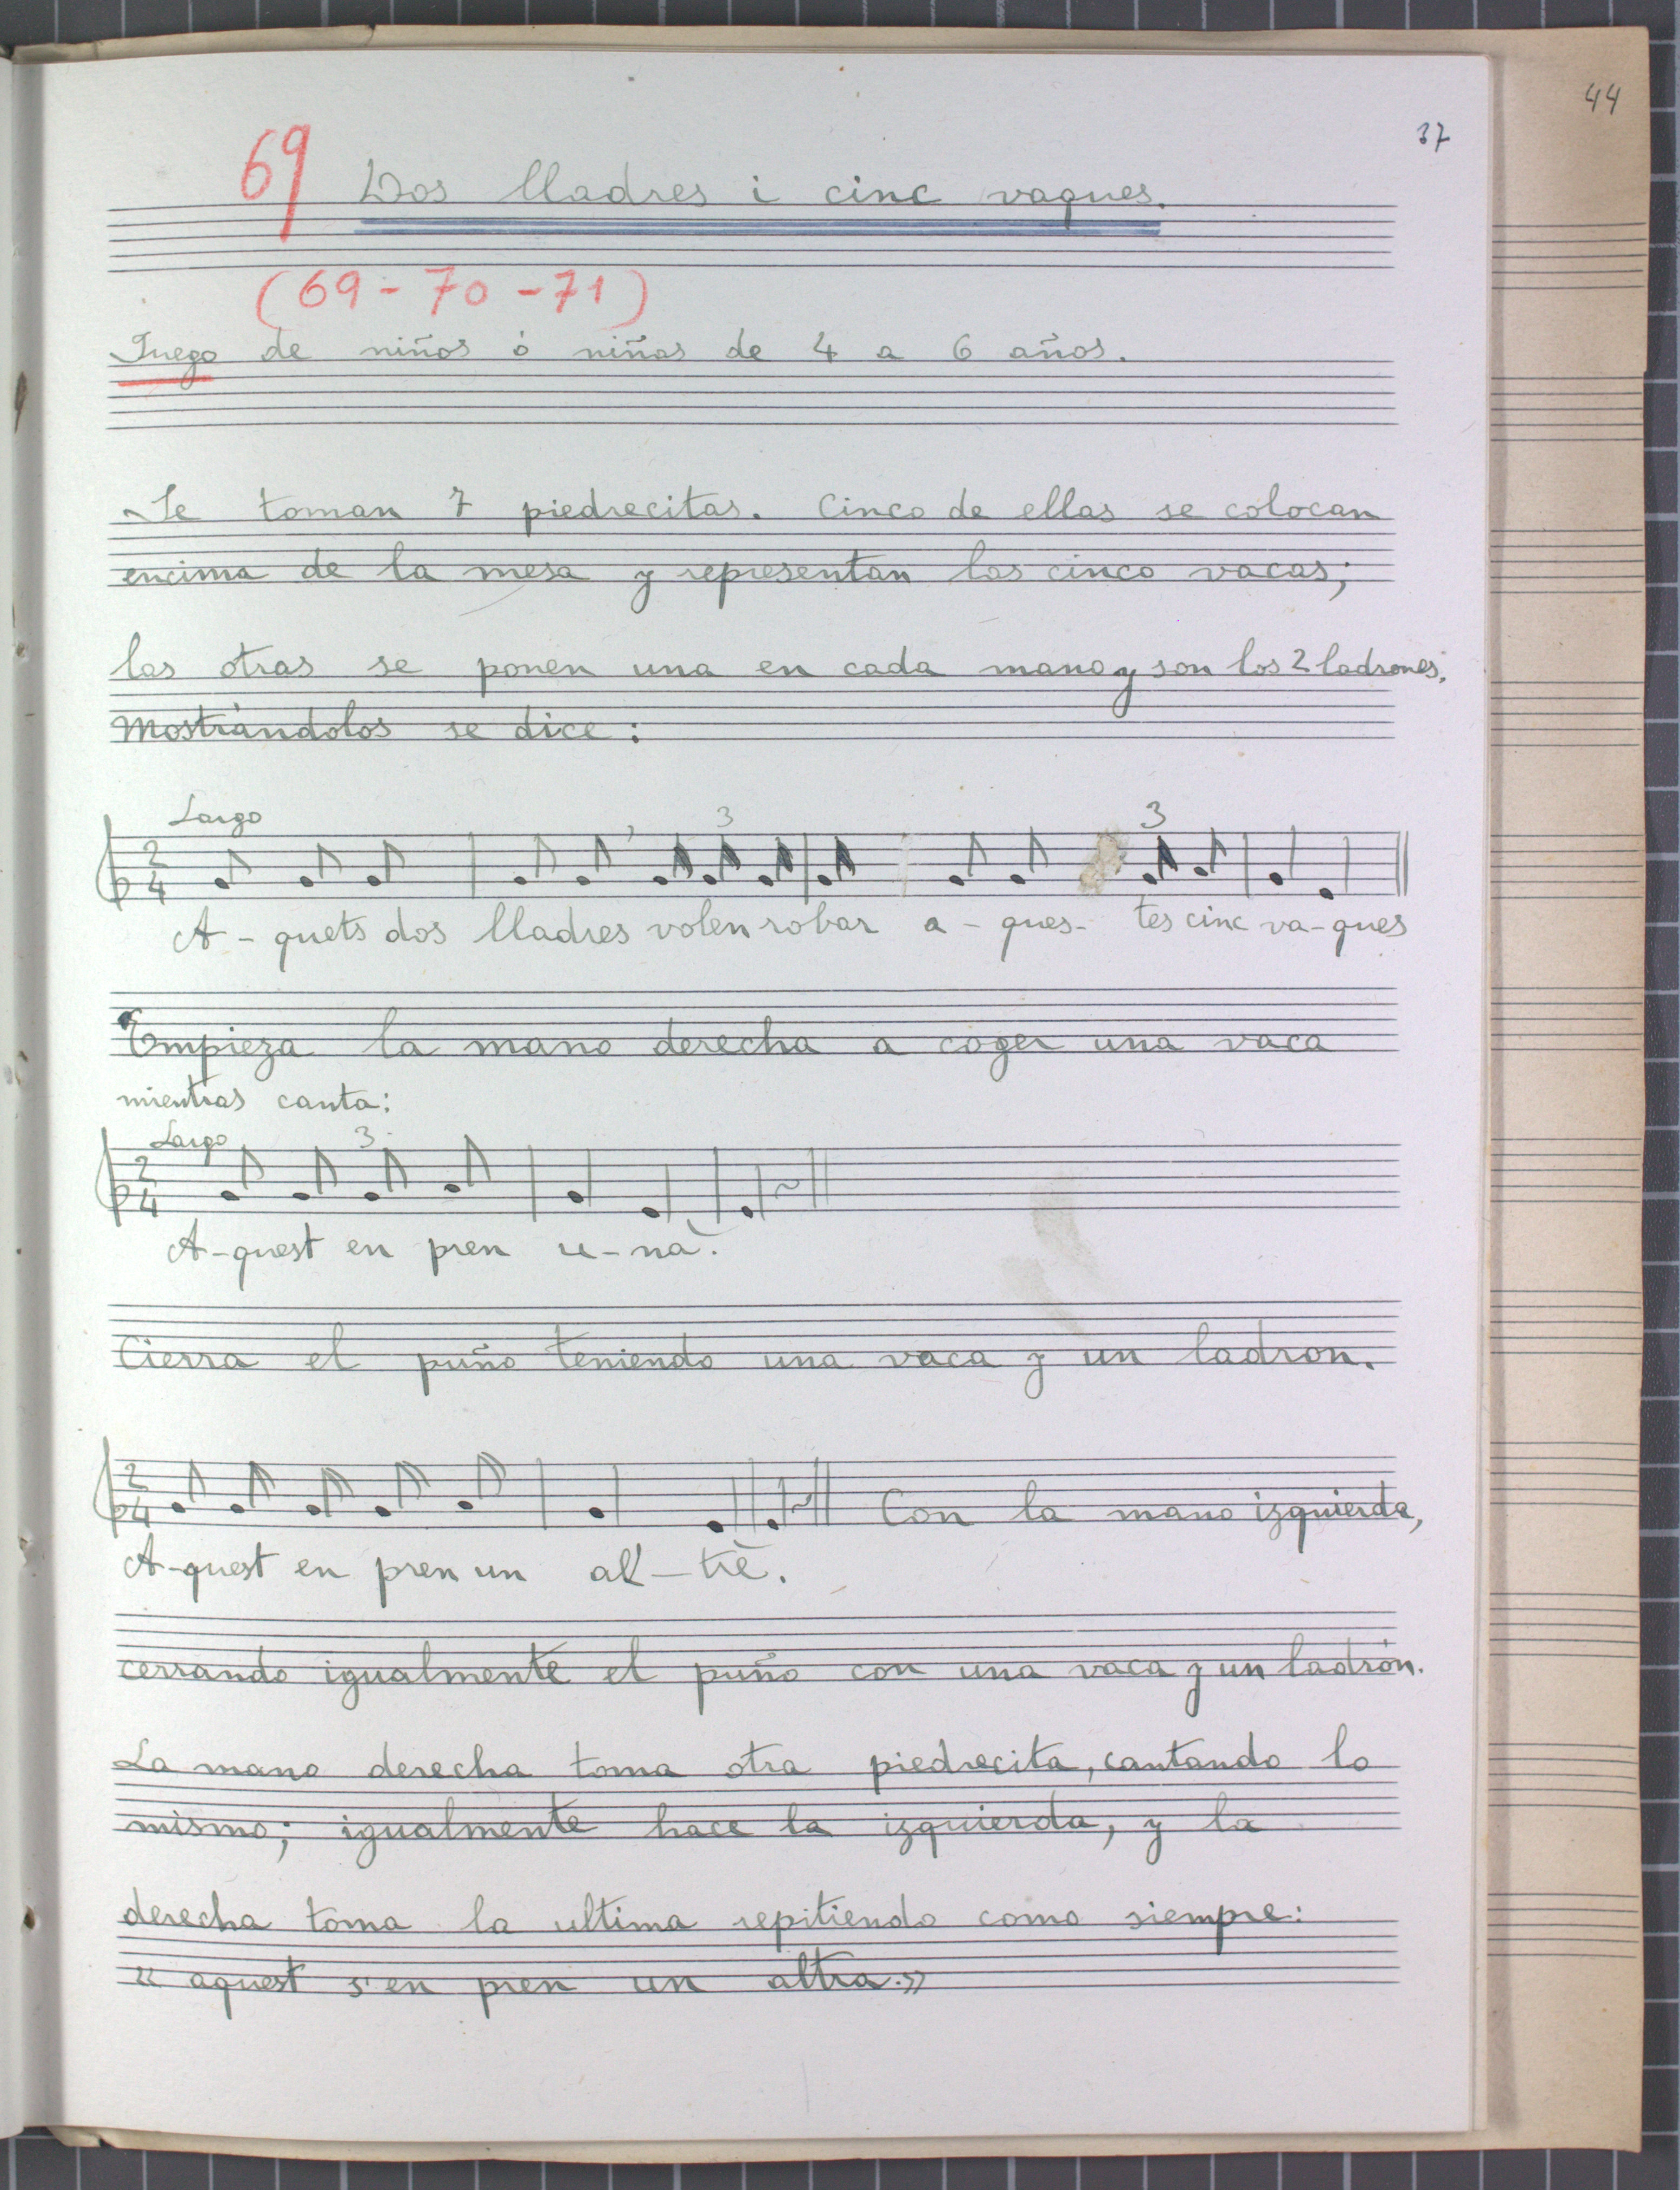 44
37
69 Dos lladres i cinc vaques.
(69-70-71)
Juego de niños ó niñas de 4 a 6 años.
Se toman 7 piedrecitas. Cinco de ellas se colocan
encima de la mesa y representan las cinco vacas;
las otras se ponen una en cada mano y son los 2 ladrones.
Mostràndolos se dice:
Largo 3 3
2
4
A-quets dos lladres volen robar a-ques-tes cinc va-ques
Empieza la mano derecha a coger una vaca
mientras canta:
Largo 3
2
4
A-quest en pren u-nà.
Cierra el puño teniendo una vaca y un ladron.
2
4
Con la mano izquierda,
A-quest en pren un al-trè.
cerrando igualmente el puño con una vaca y un ladrón.
La mano derecha toma otra piedrecita, cantando lo
mismo; igualmente hace la izquierda, y la
derecha toma la ultima repitiendo como siempre:
"aquest s'en pren un altra.»